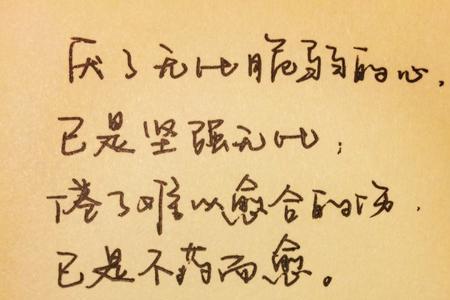 厌了无比脆弱的心,
已是坚强无比;
倦了难以愈合的伤.
已是不药而愈。